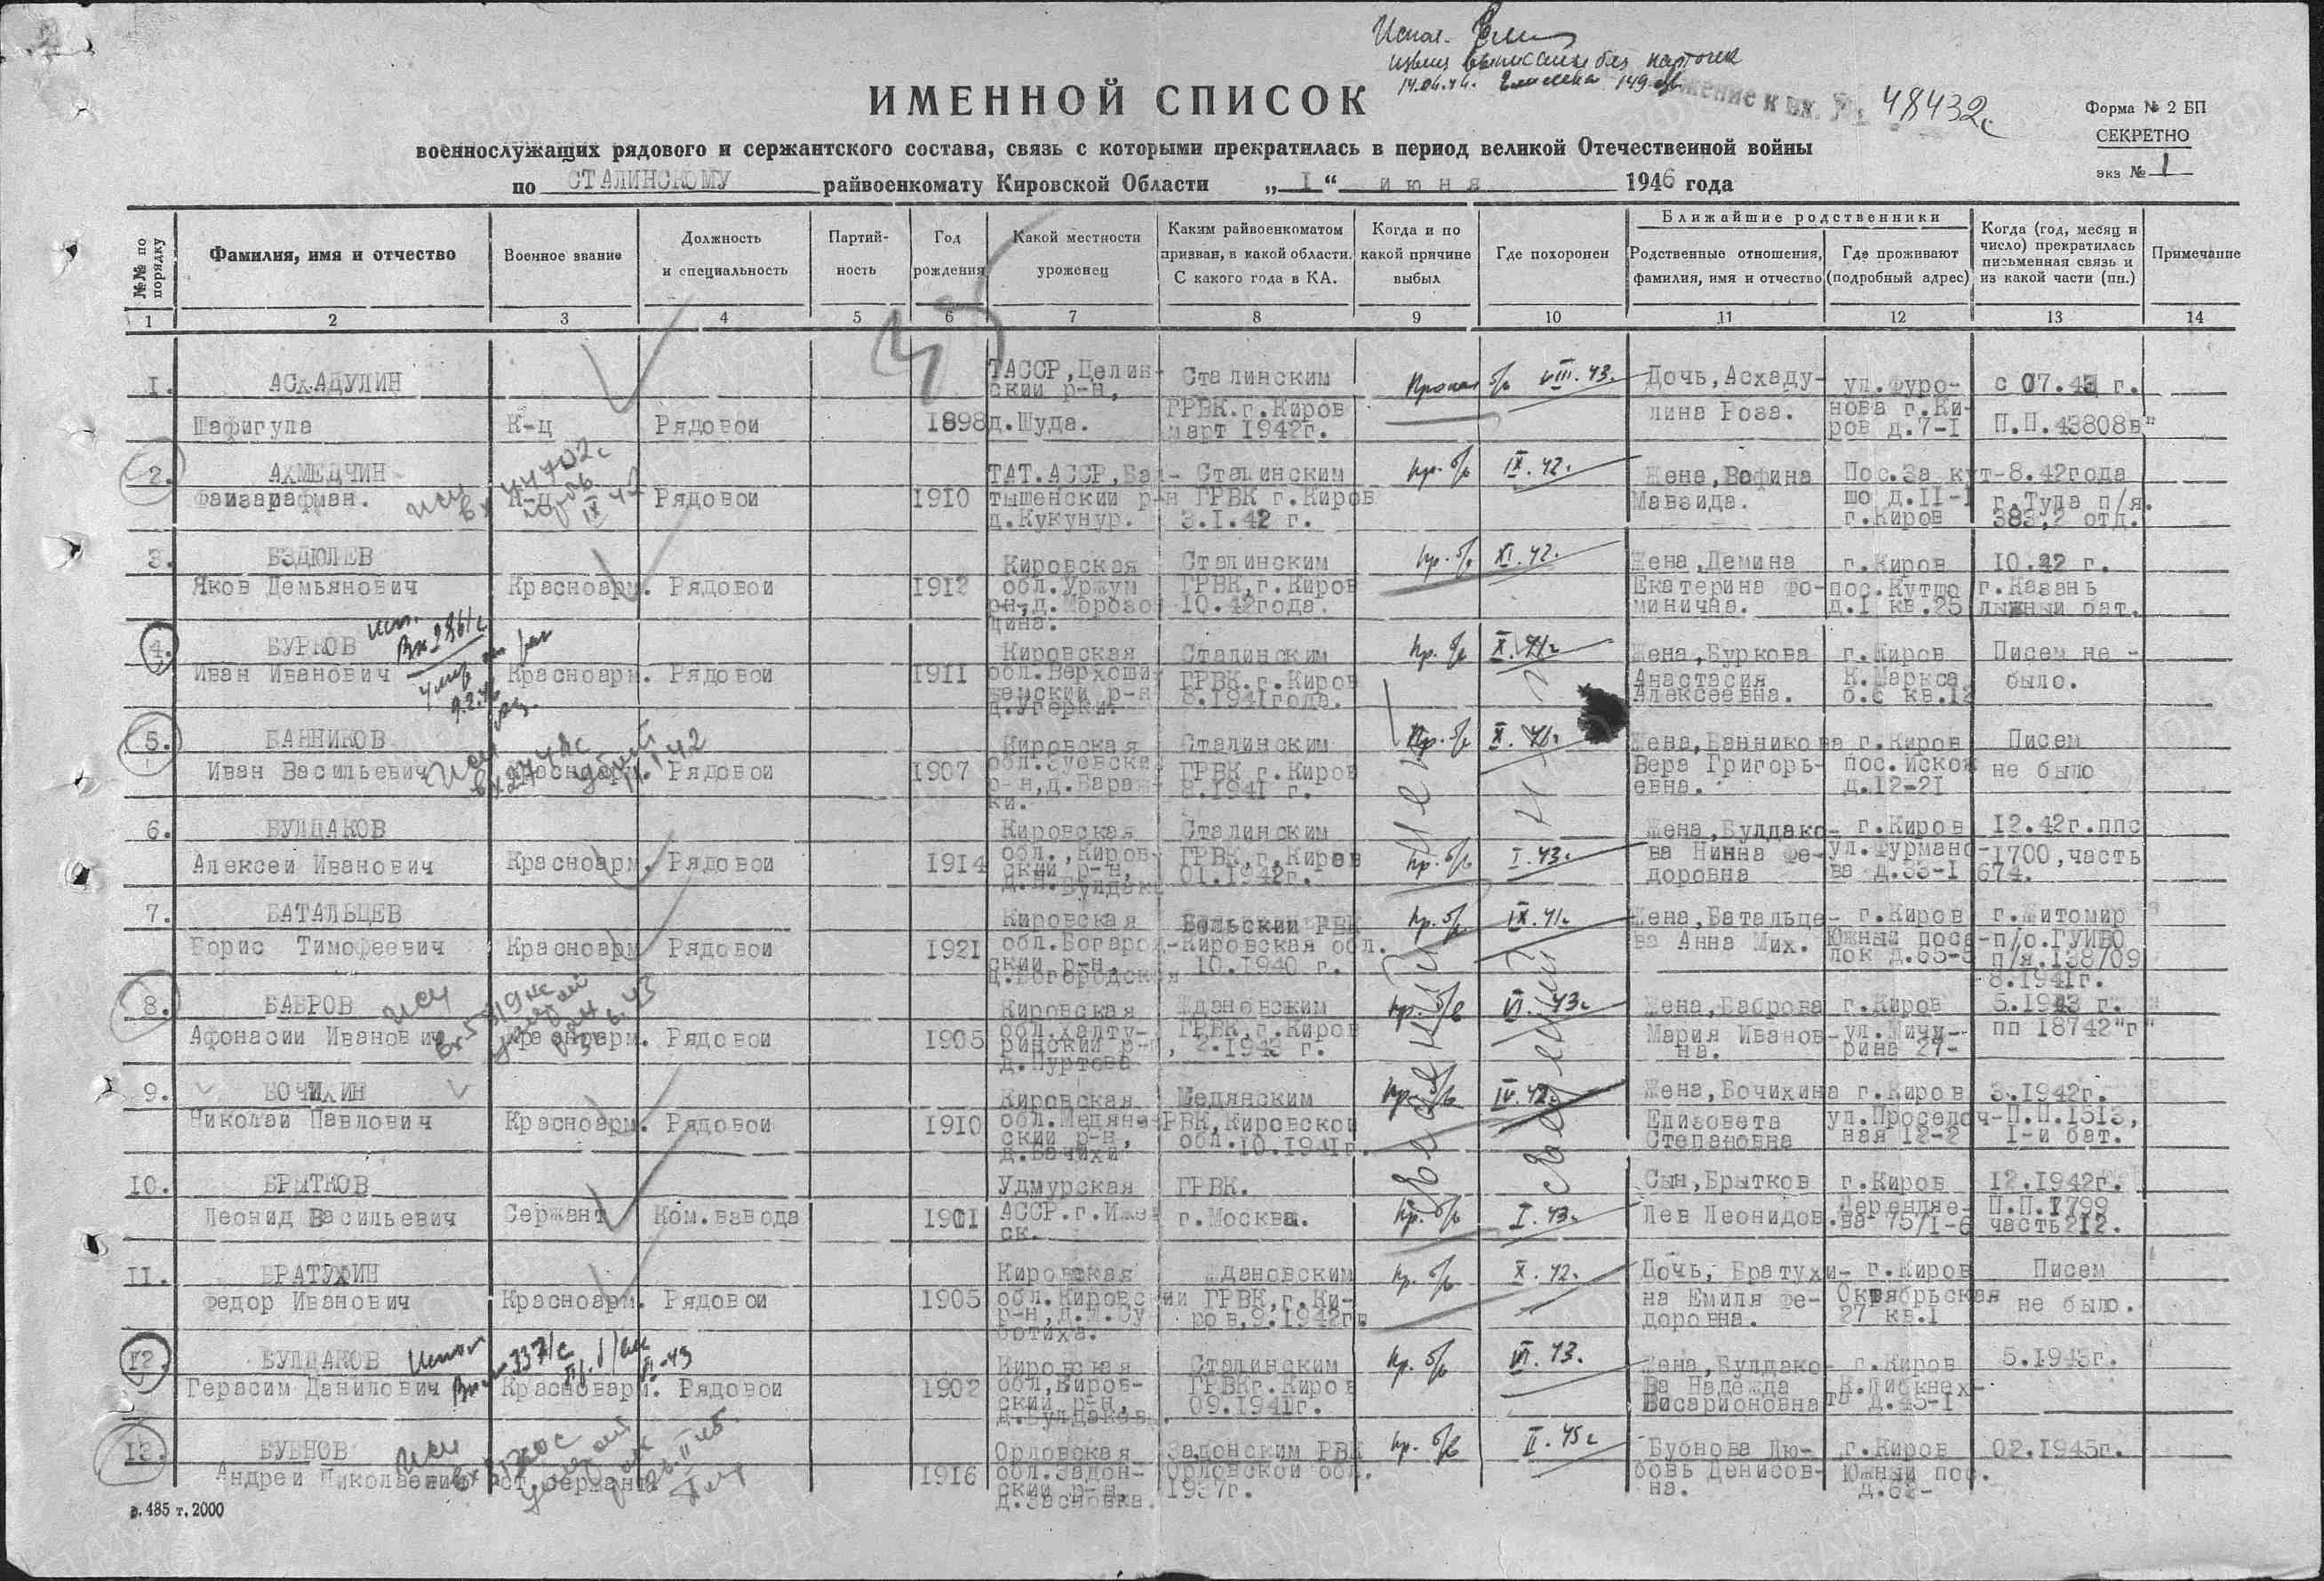 48432с
ИМЕННОЙ СПИСОК
Форма № 2 БП
СЕКРЕТНО
экз № 1
военнослужащих рядового и сержантского состава, связь с которыми прекратилась в период великой Отечественной войны
по СТАЛИНСКОМУ райвоенкомату Кировской Области „ I “ июня 1946 года
№№ по порядку
Фамилия, имя и отчество
Военное звание
Должность и специальность
Партийность
Год рождения
Какой местности уроженец
Каким райвоенкоматом призван, в какой области. С какого года в КА.
Когда и по какой причине выбыл
Где похоронен
Ближайшие родственники
Родственные отношения, фамилия, имя и отчество
Где проживают (подробный адрес)
Когда (год, месяц и число) прекратилась письменная связь и из какой части (пп.)
Примечание
1 2 3 4 5 6 7 8 9 10 11 12 13 14
I. АСХАДУЛИН Шафигула К-ц Рядовой 1898 ТАССР, Целинский р-н, д.Шуда. Сталинским ГРВК.г.Киров март 1942г. Пропал б/в VIII.43. Дочь, Асхадулина Роза. ул.Фуронова г.Киров д.7-I с 07.43 г. П.П.43808в"
2. АХМЕДЧИН Фаизарафман. К-ц Рядовой 1910 ТАТ.АССР, Балтышенский р-н д.Кукунур. Сталинским ГРВК г.Киров 3.I.42 г. пр. б/в IX.42. Жена, Вафина Мавзида. Пос.За кутшо д.II-I г.Киров 8.42года г.Тула п/я. 383,2 отд.
3. БЗДЮЛЕВ Яков Демьянович Красноарм. Рядовой 1912 Кировская обл.Уржум рн-д.Морозовщина. Сталинским ГРВК, г.Киров 10.42года. пр. б/в XI.42. Жена, Демина Екатерина Фоминична. г.Киров пос.Кутшо д.I кв.25 10.42 г. г.Казань лыжный бат.
4. БУРКОВ Иван Иванович Красноарм. Рядовой 1911 Кировская обл.Верхошижемский р-н д.Угерки. Сталинским ГРВК.г.Киров 8.1941года. пр. б/в X.41г Жена, Буркова Анастасия Алексеевна. г.Киров К.Маркса б.6 кв.12 Писем не было.
5. БАННИКОВ Иван Васильевич Красноарм. Рядовой 1907 Кировская обл.Зуевский р-н, д.Баражки. Сталинским ГРВК г.Киров 8.1941 г. пр. б/в X.41г Жена, Банникова Вера Григорьевна. г.Киров пос.Искож д.12-21 Писем не было
6. БУЛДАКОВ Алексей Иванович Красноарм. Рядовой 1914 Кировская обл., Кировский р-н, Сталинским ГРВК, г.Киров 01.1942г. пр. б/в I.43г Жена, Булдакова Нинна Федоровна г.Киров ул.Фурманова д.33-I 12.42г.ппс 1700, часть 674.
7. БАТАЛЬЦЕВ Борис Тимофеевич Красноарм Рядовой 1921 Кировская обл.Богародский р-н, д.Богородская Бельский РВК Кировская обл. 10.1940 г. пр. б/в IX.41г Жена, Батальцева Анна Мих. г.Киров Южный поселок д.65-5 г.Житомир п/о.ГУИВО п/я.138/09 8.1941г.
8. БАБРОВ Афонасий Иванович Красноарм. Рядовой 1905 Кировская обл.Халтуринский р-н, д.Пуртова Ждановским ГРВК, г.Киров 2.1943 г. пр. б/в VI.43г Жена, Баброва Мария Ивановна. г.Киров ул.Мичурина 27- 5.1943 г. пп 18742"г"
9. БОЧИХИН Николай Павлович Красноарм. Рядовой 1910 Кировская обл.Медянский р-н, д.Бачихи Медянским РВК, Кировской обл.10.1941г. пр. б/в IV.42г Жена, Бочихина Елизовета Степановна г.Киров ул.Проселочная 12-2 3.1942г. П.П.1513, I-й бат.
10. БРЫТКОВ Леонид Васильевич Сержант Ком.взвода 1901 Удмурская АССР.г.Ижевск. ГРВК. г.Москва. пр. б/в I.43г Сын, Брытков Лев Леонидов. г.Киров Дерендяева 75/I-6 12.1942г. П.П.1799 часть 212.
11. БРАТУХИН Федор Иванович Красноарм. Рядовой 1905 Кировская обл.Кировский р-н, д.М.Суботиха. Ждановским ГРВК, г.Киров, 9.1942г. пр. б/в X.42. Дочь, Братухина Емиля Федоровна. г.Киров Октябрьская 27 кв.1 Писем не было.
12. БУЛДАКОВ Герасим Данилович Красновари. Рядовой 1902 Кировская обл, Кировский р-н, д.Булдаков. Сталинским ГРВКг.Киров 09.1941г. пр. б/в VI.43. Жена, Булдакова Надежда Висарионовна г.Киров К.Либкнехта д.45-I 5.1943г.
13. БУБНОВ Андрей Николаевич ст.сержант 1916 Орловская обл.Задонский р-н, д.Засновка. Задонским РВК Орловской обл. 1937г. пр. б/в II.45г Бубнова Любовь Денисовна. г.Киров Южный пос. д.62- 02.1945г.
з. 485 т. 2000